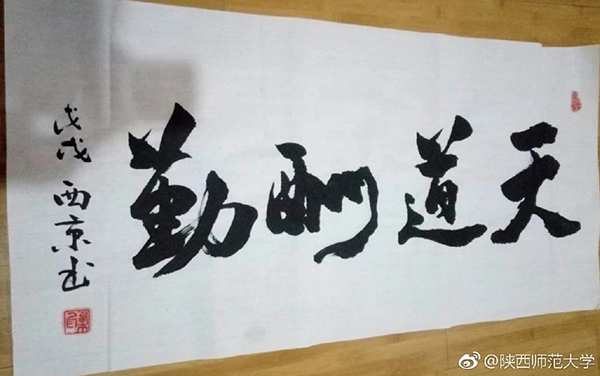 天道酬勤
戊戌 西京书
@陕西师范大学